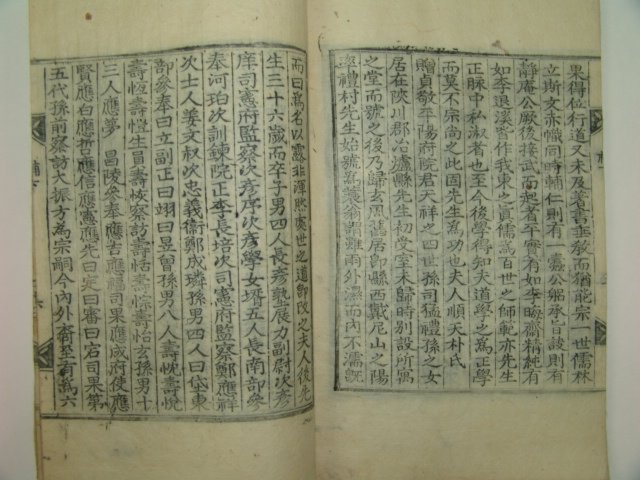 果得位行道又未及著書垂敎而猶能宗一世儒林
立斯文赤幟同時輔仁則有一蠹公嗣承旨訣則有
靜庵公厥後接武而起者平實有如李晦齋精純有
如李退溪皆作我東之眞儒爲百世之師範亦先生
正脉中私淑者也至今後學得知夫道學之爲正學
而莫不宗尙之此固先生爲功也夫人順天朴氏
贈貞敬平陽府院君天祥之四世孫司猛禮孫之女
居在陜川郡冶爐縣先生初受室未歸時別設所寓
之堂而號之後乃歸玄風舊居卽縣西戴尼山之陽
率禮村先生始號爲蓑翁謂雖雨外濕而內不濡旣
而曰爲名以露非渾然處世之道卽改之夫人後先
生三十六歲而卒子男四人長彦塾展力副尉次彦
庠司憲府監察次彦序次彦學女壻五人長南部參
奉河珀次訓鍊院正李長培次司憲府監察鄭應祥
次士人姜文叔次忠義衛鄭成璘孫男四人曰岱東
部參奉曰立副正曰翊曰昱曾孫男八人壽忱壽悅
壽恒壽愷生員壽恢察訪壽恬壽悰壽怡玄孫男十
三人應夢 昌陵參奉應吉應福司果應成府使應
賢應白應哲應信應憲應先曰定曰審曰宕司果第
五代孫前察訪大振方爲宗嗣今內外孫至有爲六